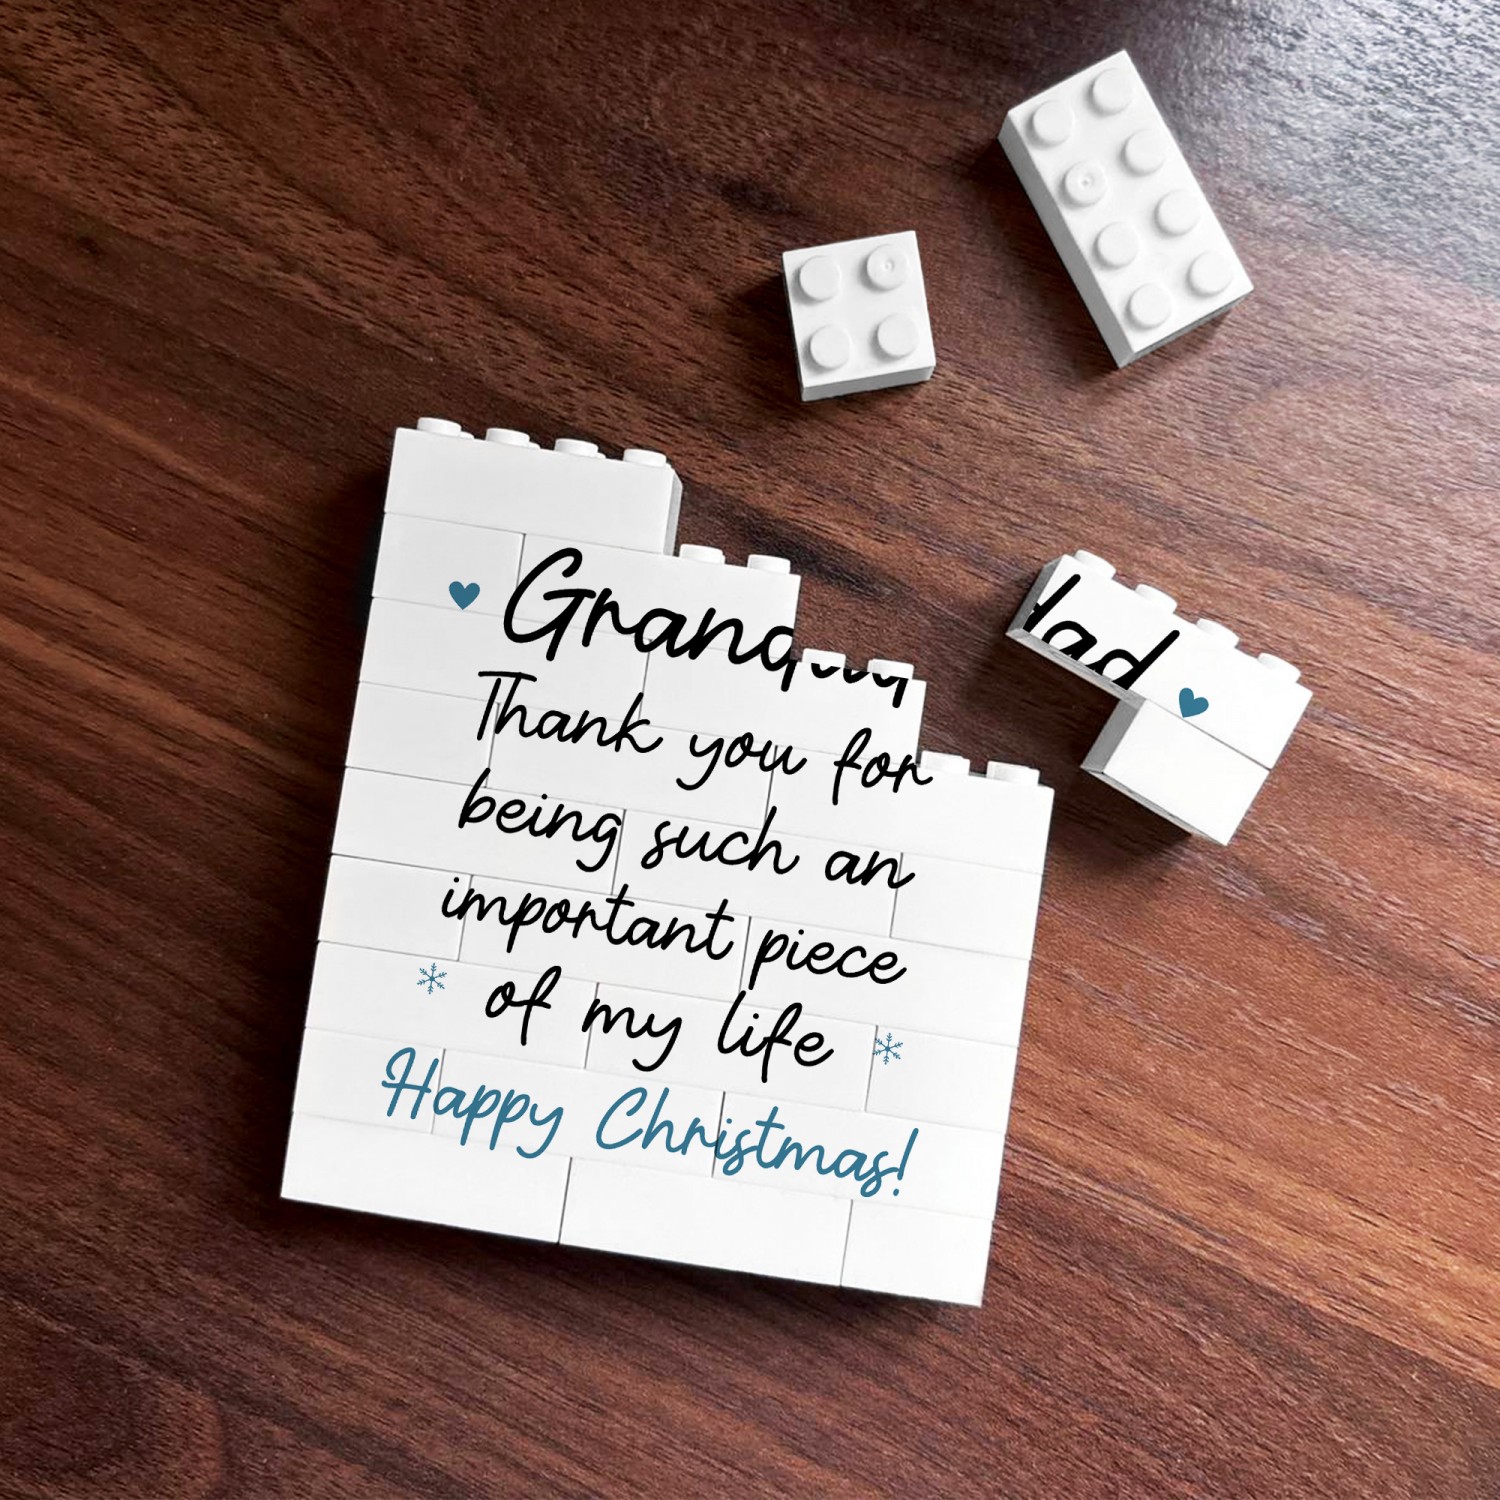 Grandad
Thank you for
being such an
important piece
of my life
Happy Christmas!